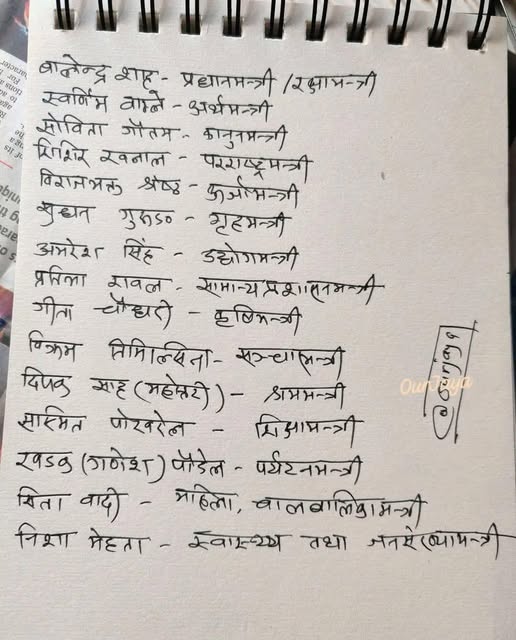 बालेन्द्र शाह - प्रधानमन्त्री /रक्षामन्त्री
स्वर्णिम वाग्ले - अर्थमन्त्री
सोविता गौतम - कानुनमन्त्री
शिशिर खनाल - परराष्ट्रमन्त्री
विराजभक्त श्रेष्ठ - ऊर्जामन्त्री
सुधन गुरुङ - गृहमन्त्री
अमरेश सिंह - उद्योगमन्त्री
प्रतिभा रावल - सामान्य प्रशासनमन्त्री
गीता चौधरी - कृषिमन्त्री
विक्रम तिमिल्सिना - सञ्चारमन्त्री
दिपक साह (महोत्तरी) - श्रममन्त्री
सस्मित पोखरेल - शिक्षामन्त्री
खडक (गणेश) पौडेल - पर्यटनमन्त्री
सिता वादी - महिला, बालबालिकामन्त्री
निशा मेहता - स्वास्थ्य तथा जनसंख्यामन्त्री
OunJaya